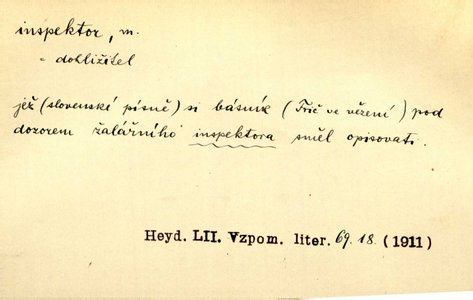 inspektor, m.
= dohlížitel
jěž (slovenské písně) si básník (Frič ve vězení) pod
dozorem žalářního inspektora směl opisovati.
Heyd. LII. Vzpom. liter. 69. 18. (1911)